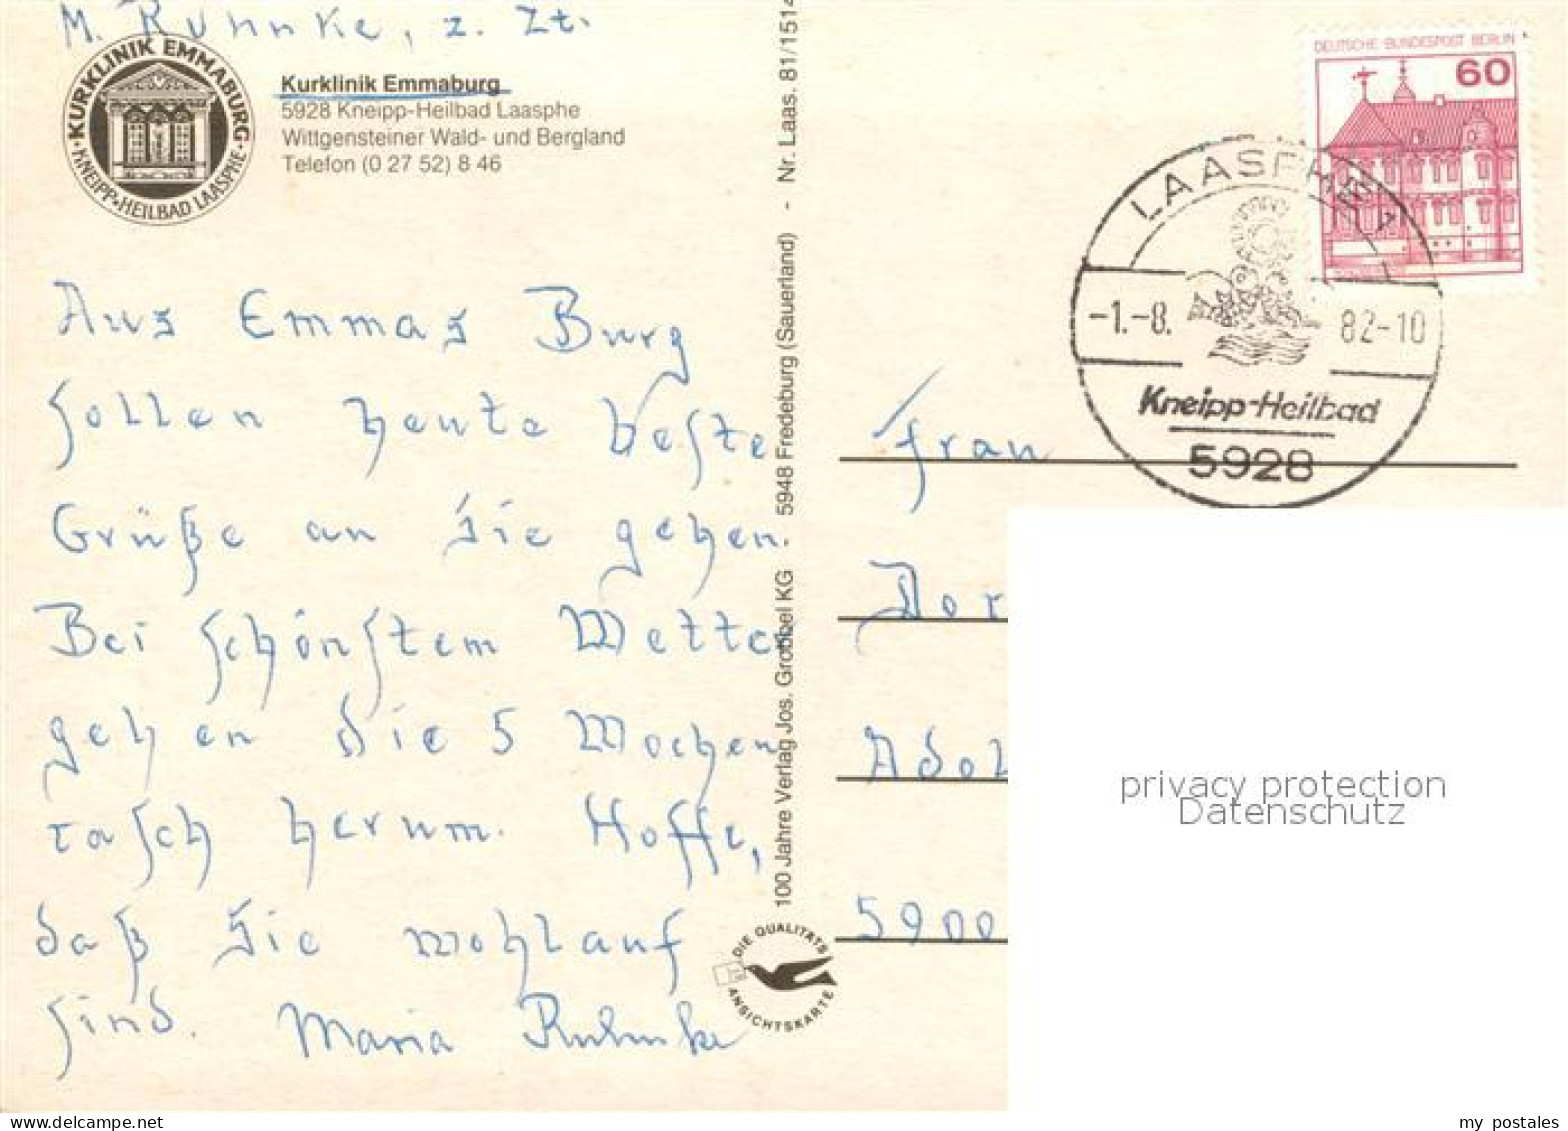 M. Ruhnke, z. Zt.
KURKLINIK EMMABURG
KNEIPP-HEILBAD LAASPHE
Kurklinik Emmaburg
5928 Kneipp-Heilbad Laasphe
Wittgensteiner Wald- und Bergland
Telefon (0 27 52) 8 46
Aus Emmas Burg
sollen heute beste
Grüße an Sie gehen.
Bei schönstem Wetter
gehen die 5 Wochen
rasch herum. Hoffe,
daß Sie wohlauf
sind. Maria Ruhnke
100 Jahre Verlag Jos. Grobbel KG - 5948 Fredeburg (Sauerland) - Nr. Laas. 81/1514
DIE QUALITÄTS
ANSICHTSKARTE
DEUTSCHE BUNDESPOST BERLIN
60
LAASPHE 1
-1.-8. 82-10
Kneipp-Heilbad
5928
Frau
Dor
Adol
5900
privacy protection
Datenschutz
my postales